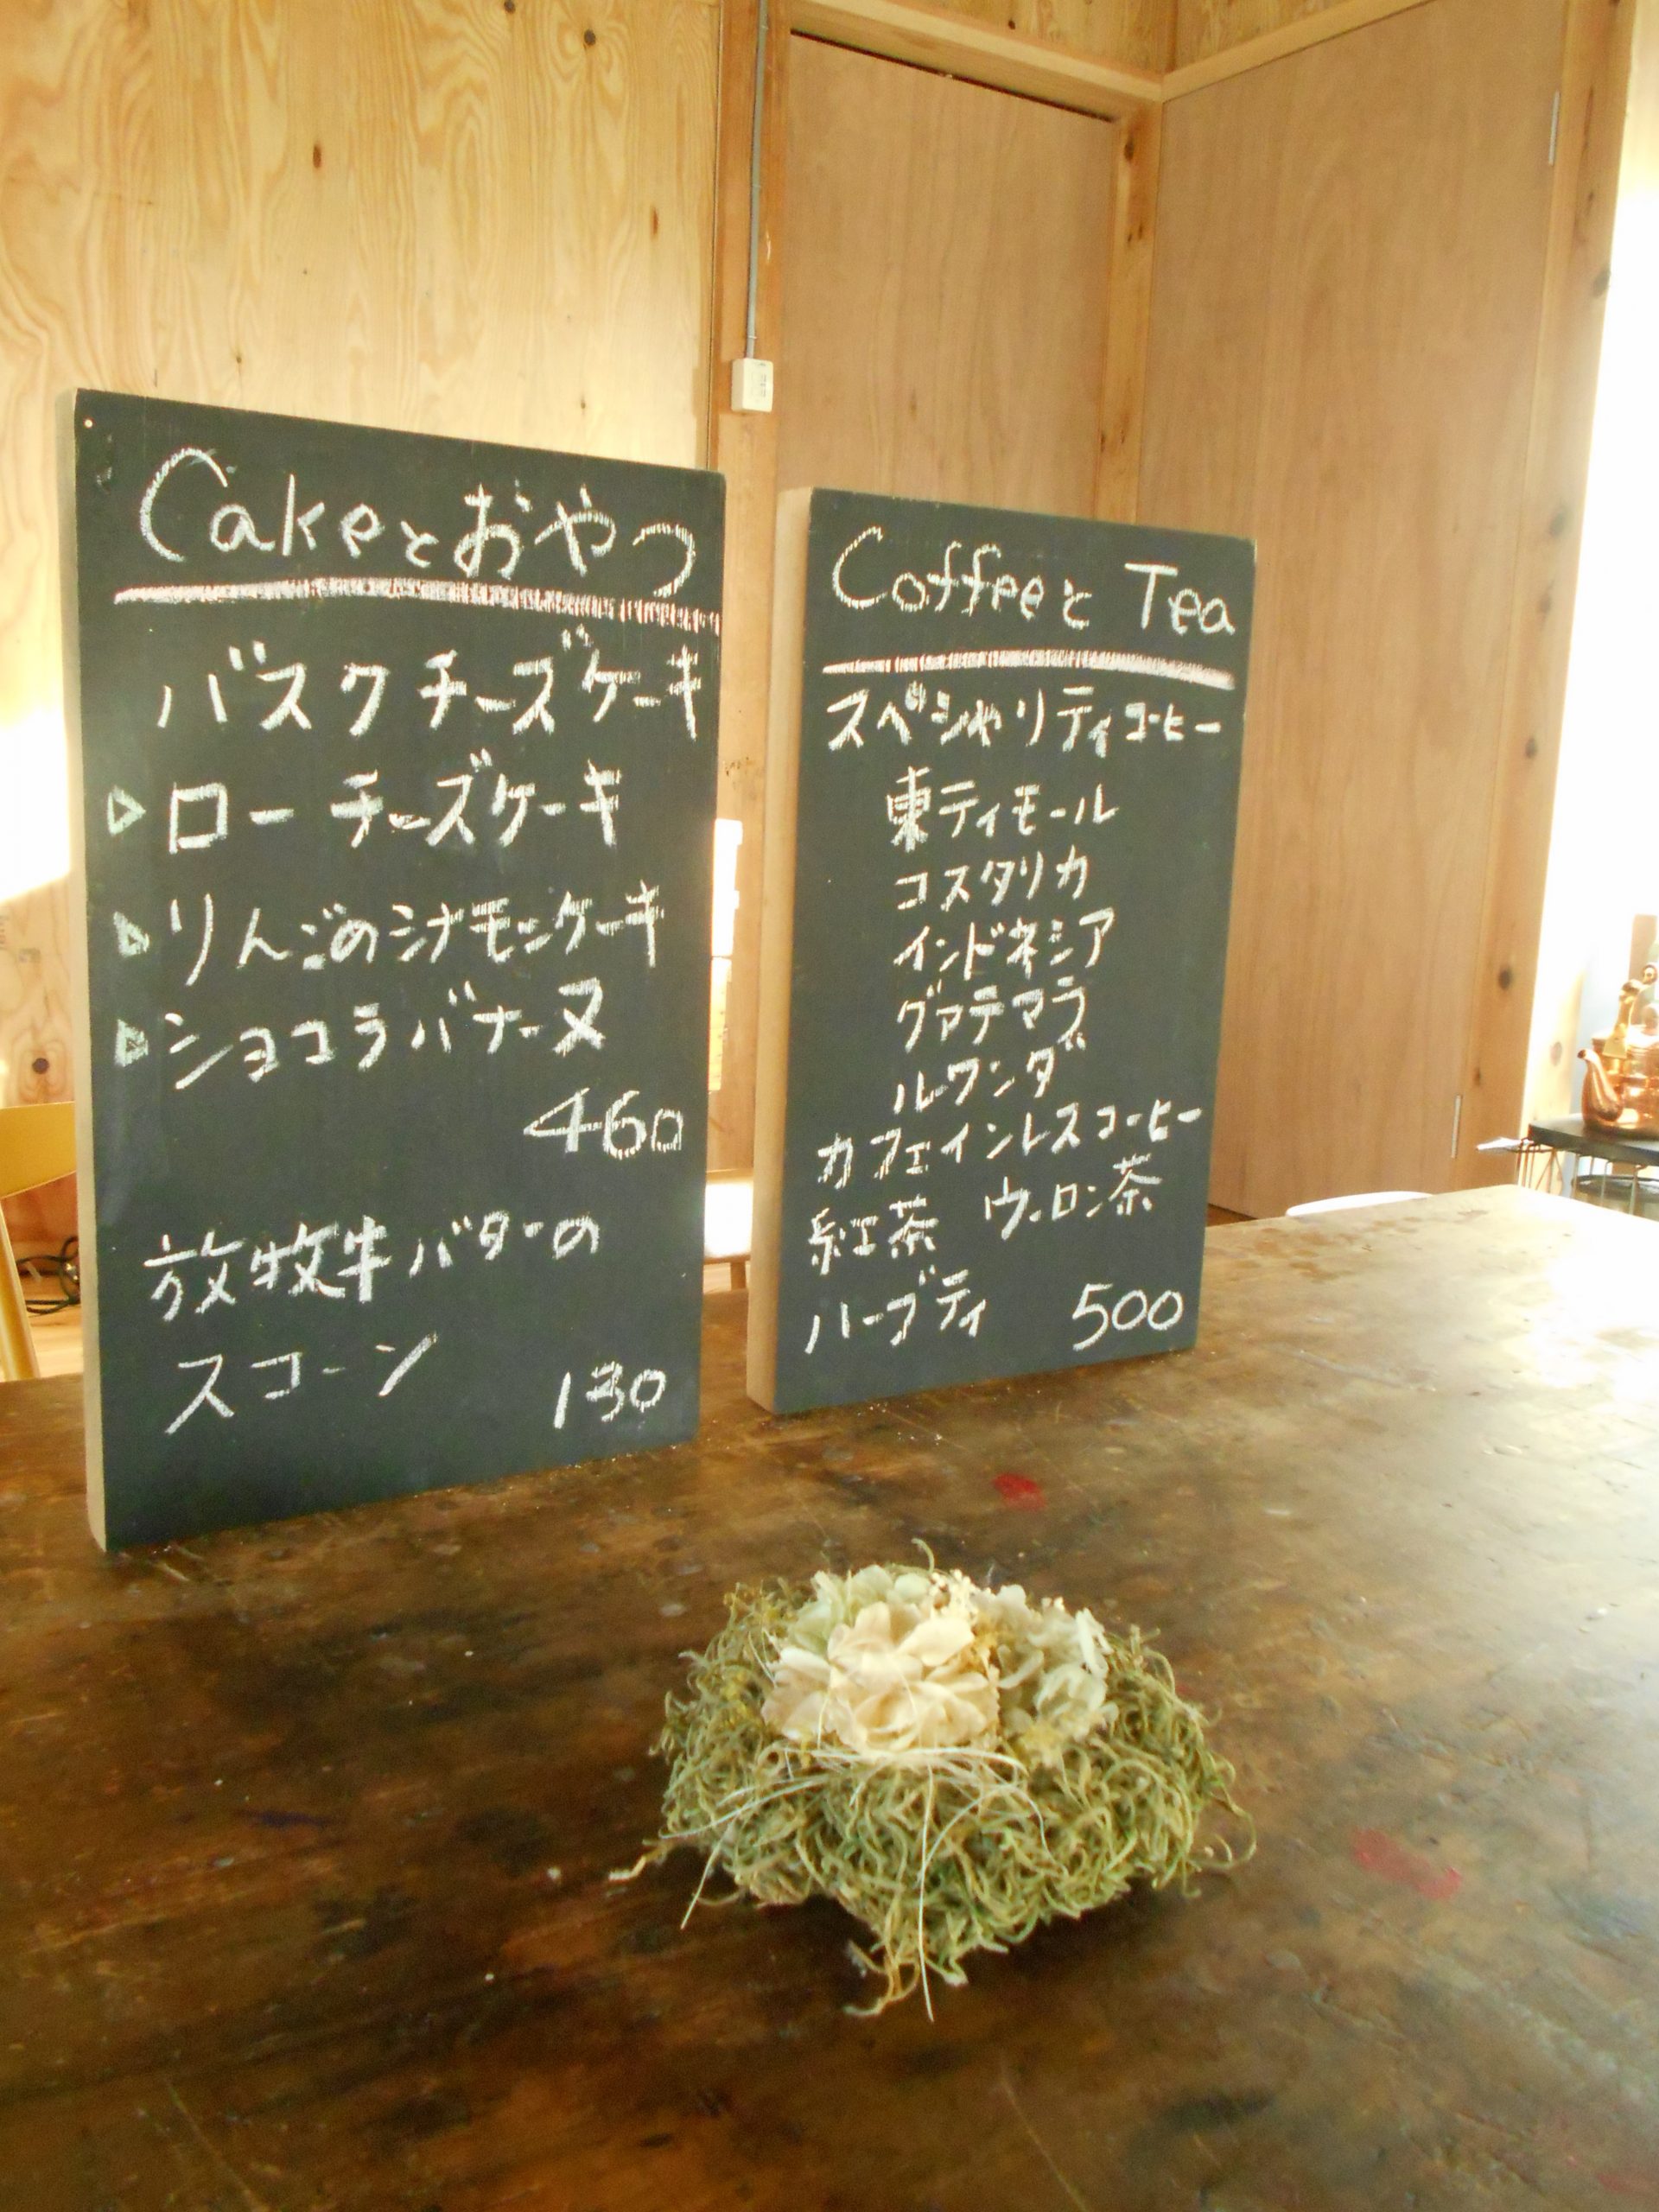 Cakeとおやつ
バスクチーズケーキ
▷ローチーズケーキ
▷りんごのシナモンケーキ
▷ショコラバナーヌ
460
放牧牛バターの
スコーン 130
Coffeeと Tea
スペシャリティコーヒー
東ティモール
コスタリカ
インドネシア
グァテマラ
ルワンダ
カフェインレスコーヒー
紅茶 ウーロン茶
ハーブティ 500